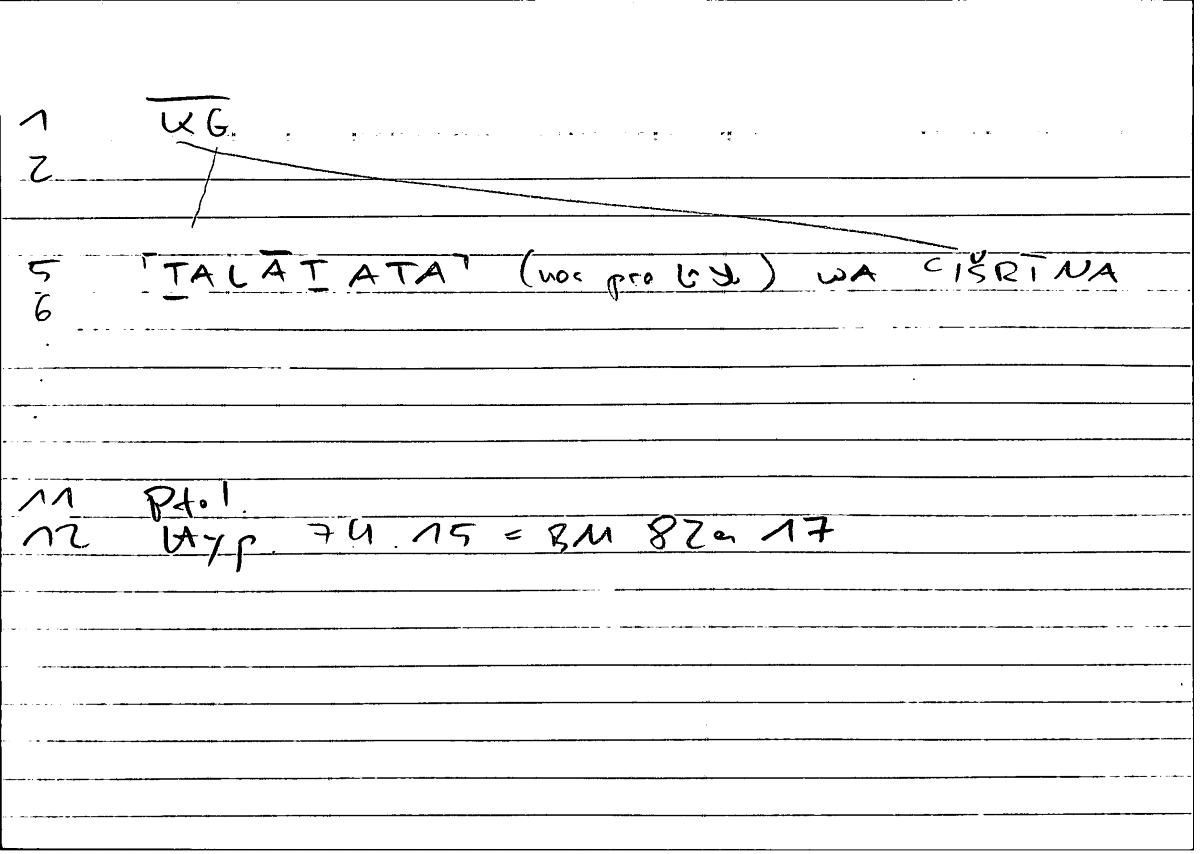 1 KG
2
5 ⌜ṮALĀṮATA⌝ (voc pro ) WA ʿIŠRĪNA
6
11 Ptol.
12 Hyp. 74.15 = BM 82a 17